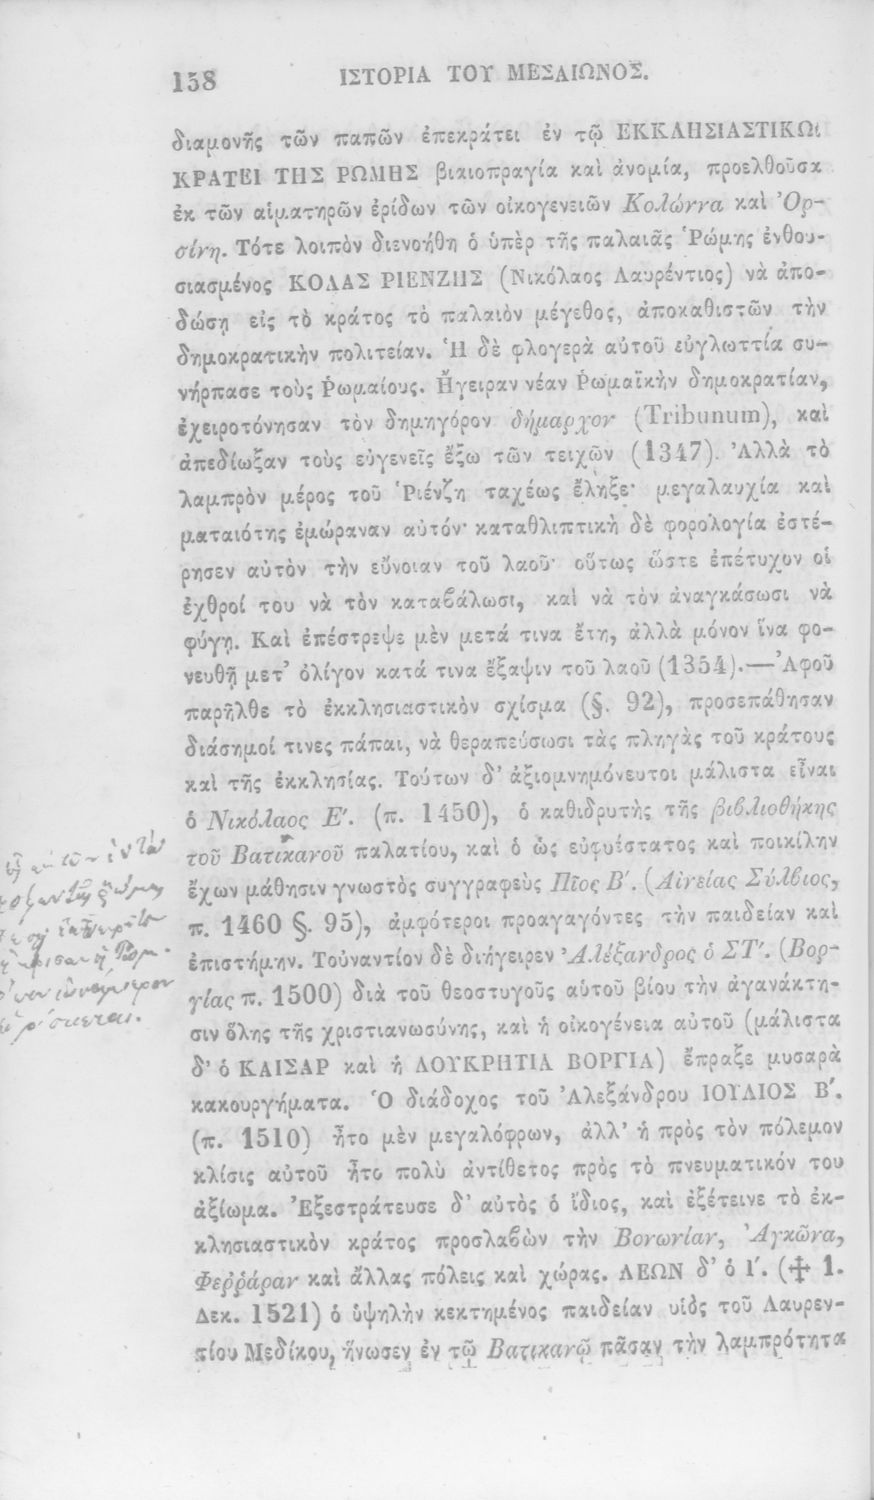 158 ΙΣΤΟΡΙΑ ΤΟΥ ΜΕΣΑΙΩΝΟΣ.
διαμονῆς τῶν παπῶν ἐπεκράτει ἐν τῷ ΕΚΚΛΗΣΙΑΣΤΙΚΩι
ΚΡΑΤΕΙ ΤΗΣ ΡΩΜΗΣ βιαιοπραγία καὶ ἀνομία, προελθοῦσα
ἐκ τῶν αἱματηρῶν ἐρίδων τῶν οἰκογενειῶν Κολώννα καὶ Ὀρ-
σίνη. Τότε λοιπὸν διενοήθη ὁ ὑπὲρ τῆς παλαιᾶς Ῥώμης ἐνθου-
σιασμένος ΚΟΛΑΣ ΡΙΕΝΖΗΣ (Νικόλαος Λαυρέντιος) νὰ ἀπο-
δώσῃ εἰς τὸ κράτος τὸ παλαιὸν μέγεθος, ἀποκαθιστῶν τὴν
δημοκρατικὴν πολιτείαν. Ἡ δὲ φλογερὰ αὐτοῦ εὐγλωττία συ-
νήρπασε τοὺς Ῥωμαίους. Ἤγειραν νέαν Ῥωμαϊκὴν δημοκρατίαν,
ἐχειροτόνησαν τὸν δημηγόρον δήμαρχον (Tribunum), καὶ
ἀπεδίωξαν τοὺς εὐγενεῖς ἔξω τῶν τειχῶν (1347). Ἀλλὰ τὸ
λαμπρὸν μέρος τοῦ Ῥιένζη ταχέως ἔληξε· μεγαλαυχία καὶ
ματαιότης ἐμώραναν αὐτόν· καταθλιπτικὴ δὲ φορολογία ἐστέ-
ρησεν αὐτὸν τὴν εὔνοιαν τοῦ λαοῦ· οὕτως ὥστε ἐπέτυχον οἱ
ἐχθροί του νὰ τὸν καταβάλωσι, καὶ νὰ τὸν ἀναγκάσωσι νὰ
φύγῃ. Καὶ ἐπέστρεψε μὲν μετά τινα ἔτη, ἀλλὰ μόνον ἵνα φο-
νευθῇ μετ’ ὀλίγον κατά τινα ἔξαψιν τοῦ λαοῦ (1354).—Ἀφοῦ
παρῆλθε τὸ ἐκκλησιαστικὸν σχίσμα (§. 92), προσεπάθησαν
διάσημοί τινες πάπαι, νὰ θεραπεύσωσι τὰς πληγὰς τοῦ κράτους
καὶ τῆς ἐκκλησίας. Τούτων δ’ ἀξιομνημόνευτοι μάλιστα εἶναι
ὁ Νικόλαος Ε΄. (π. 1450), ὁ καθιδρυτὴς τῆς βιβλιοθήκης
τοῦ Βατικανοῦ παλατίου, καὶ ὁ ὡς εὐφυέστατος καὶ ποικίλην
ἔχων μάθησιν γνωστὸς συγγραφεὺς Πῖος Β΄. (Αἰνείας Σύλβιος,
π. 1460 §. 95), ἀμφότεροι προαγαγόντες τὴν παιδείαν καὶ
ἐπιστήμην. Τοὐναντίον δὲ διήγειρεν Ἀλέξανδρος ὁ ΣΤ΄. (Βορ-
γίας π. 1500) διὰ τοῦ θεοστυγοῦς αὑτοῦ βίου τὴν ἀγανάκτη-
σιν ὅλης τῆς χριστιανωσύνης, καὶ ἡ οἰκογένεια αὐτοῦ (μάλιστα
δ’ ὁ ΚΑΙΣΑΡ καὶ ἡ ΛΟΥΚΡΗΤΙΑ ΒΟΡΓΙΑ) ἔπραξε μυσαρὰ
κακουργήματα. Ὁ διάδοχος τοῦ Ἀλεξάνδρου ΙΟΥΛΙΟΣ Β΄.
(π. 1510) ἦτο μὲν μεγαλόφρων, ἀλλ’ ἡ πρὸς τὸν πόλεμον
κλίσις αὐτοῦ ἦτο πολὺ ἀντίθετος πρὸς τὸ πνευματικόν του
ἀξίωμα. Ἐξεστράτευσε δ’ αὐτὸς ὁ ἴδιος, καὶ ἐξέτεινε τὸ ἐκ-
κλησιαστικὸν κράτος προσλαβὼν τὴν Βονωνίαν, Ἀγκῶνα,
Φεῤῥάραν καὶ ἄλλας πόλεις καὶ χώρας. ΛΕΩΝ δ’ ὁ Ι΄. (✠ 1.
Δεκ. 1521) ὁ ὑψηλὴν κεκτημένος παιδείαν υἱὸς τοῦ Λαυρεν-
τίου Μεδίκου, ἥνωσεν ἐν τῷ Βατικανῷ πᾶσαν τὴν λαμπρότητα